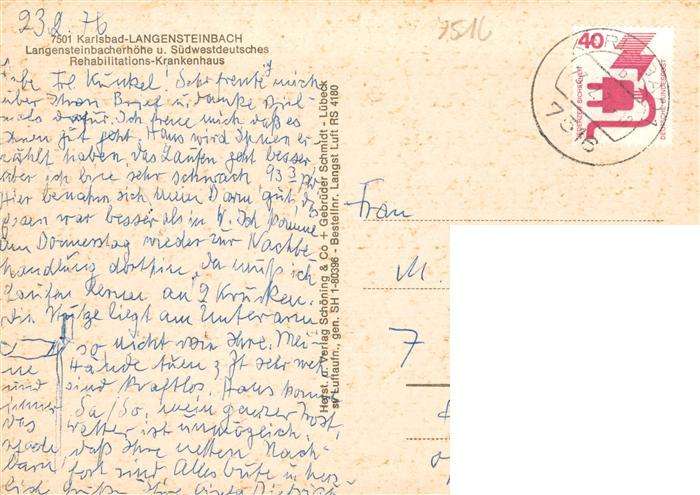 23.2.76
7516
7501 Karlsbad-LANGENSTEINBACH
Langensteinbacherhöhe u. Südwestdeutsches
Rehabilitations-Krankenhaus
40
DEUTSCHE BUNDESPOST
7516
Liebe Frl. Kunkel! Sehr freute mich
über Ihren Brief u. danke viel-
mals dafür. Ich freue mich daß es
Ihnen gut geht. Hans wird Ihnen er
zählt haben, das Laufen geht besser
aber ich bin sehr schwach 93
Hier benahm sich mein Darm gut, das
Essen war besser als in Ich komme
am Donnerstag wieder zur Nachbe
handlung dorthin, da muß ich
Laufen lernen an 2 Krücken.
Die Stütze liegt am Unterarm
so nicht wie Ihre. Mei
ne Hände tuen z. Zt sehr weh
und sind kraftlos. Hans kommt
immer Sa/So, mein ganzer Trost,
das Wetter ist unmöglich.
Schade daß Ihre netten Nach-
barn fort sind Alles Gute u herz
lich Grüße Ihre
Horst. u. Verlag Schöning & Co + Gebrüder Schmidt - Lübeck
sv Luftaufn., gen. SH 1-80396 - Bestellnr. Langst Luft RS 4180
Frau
M.
7